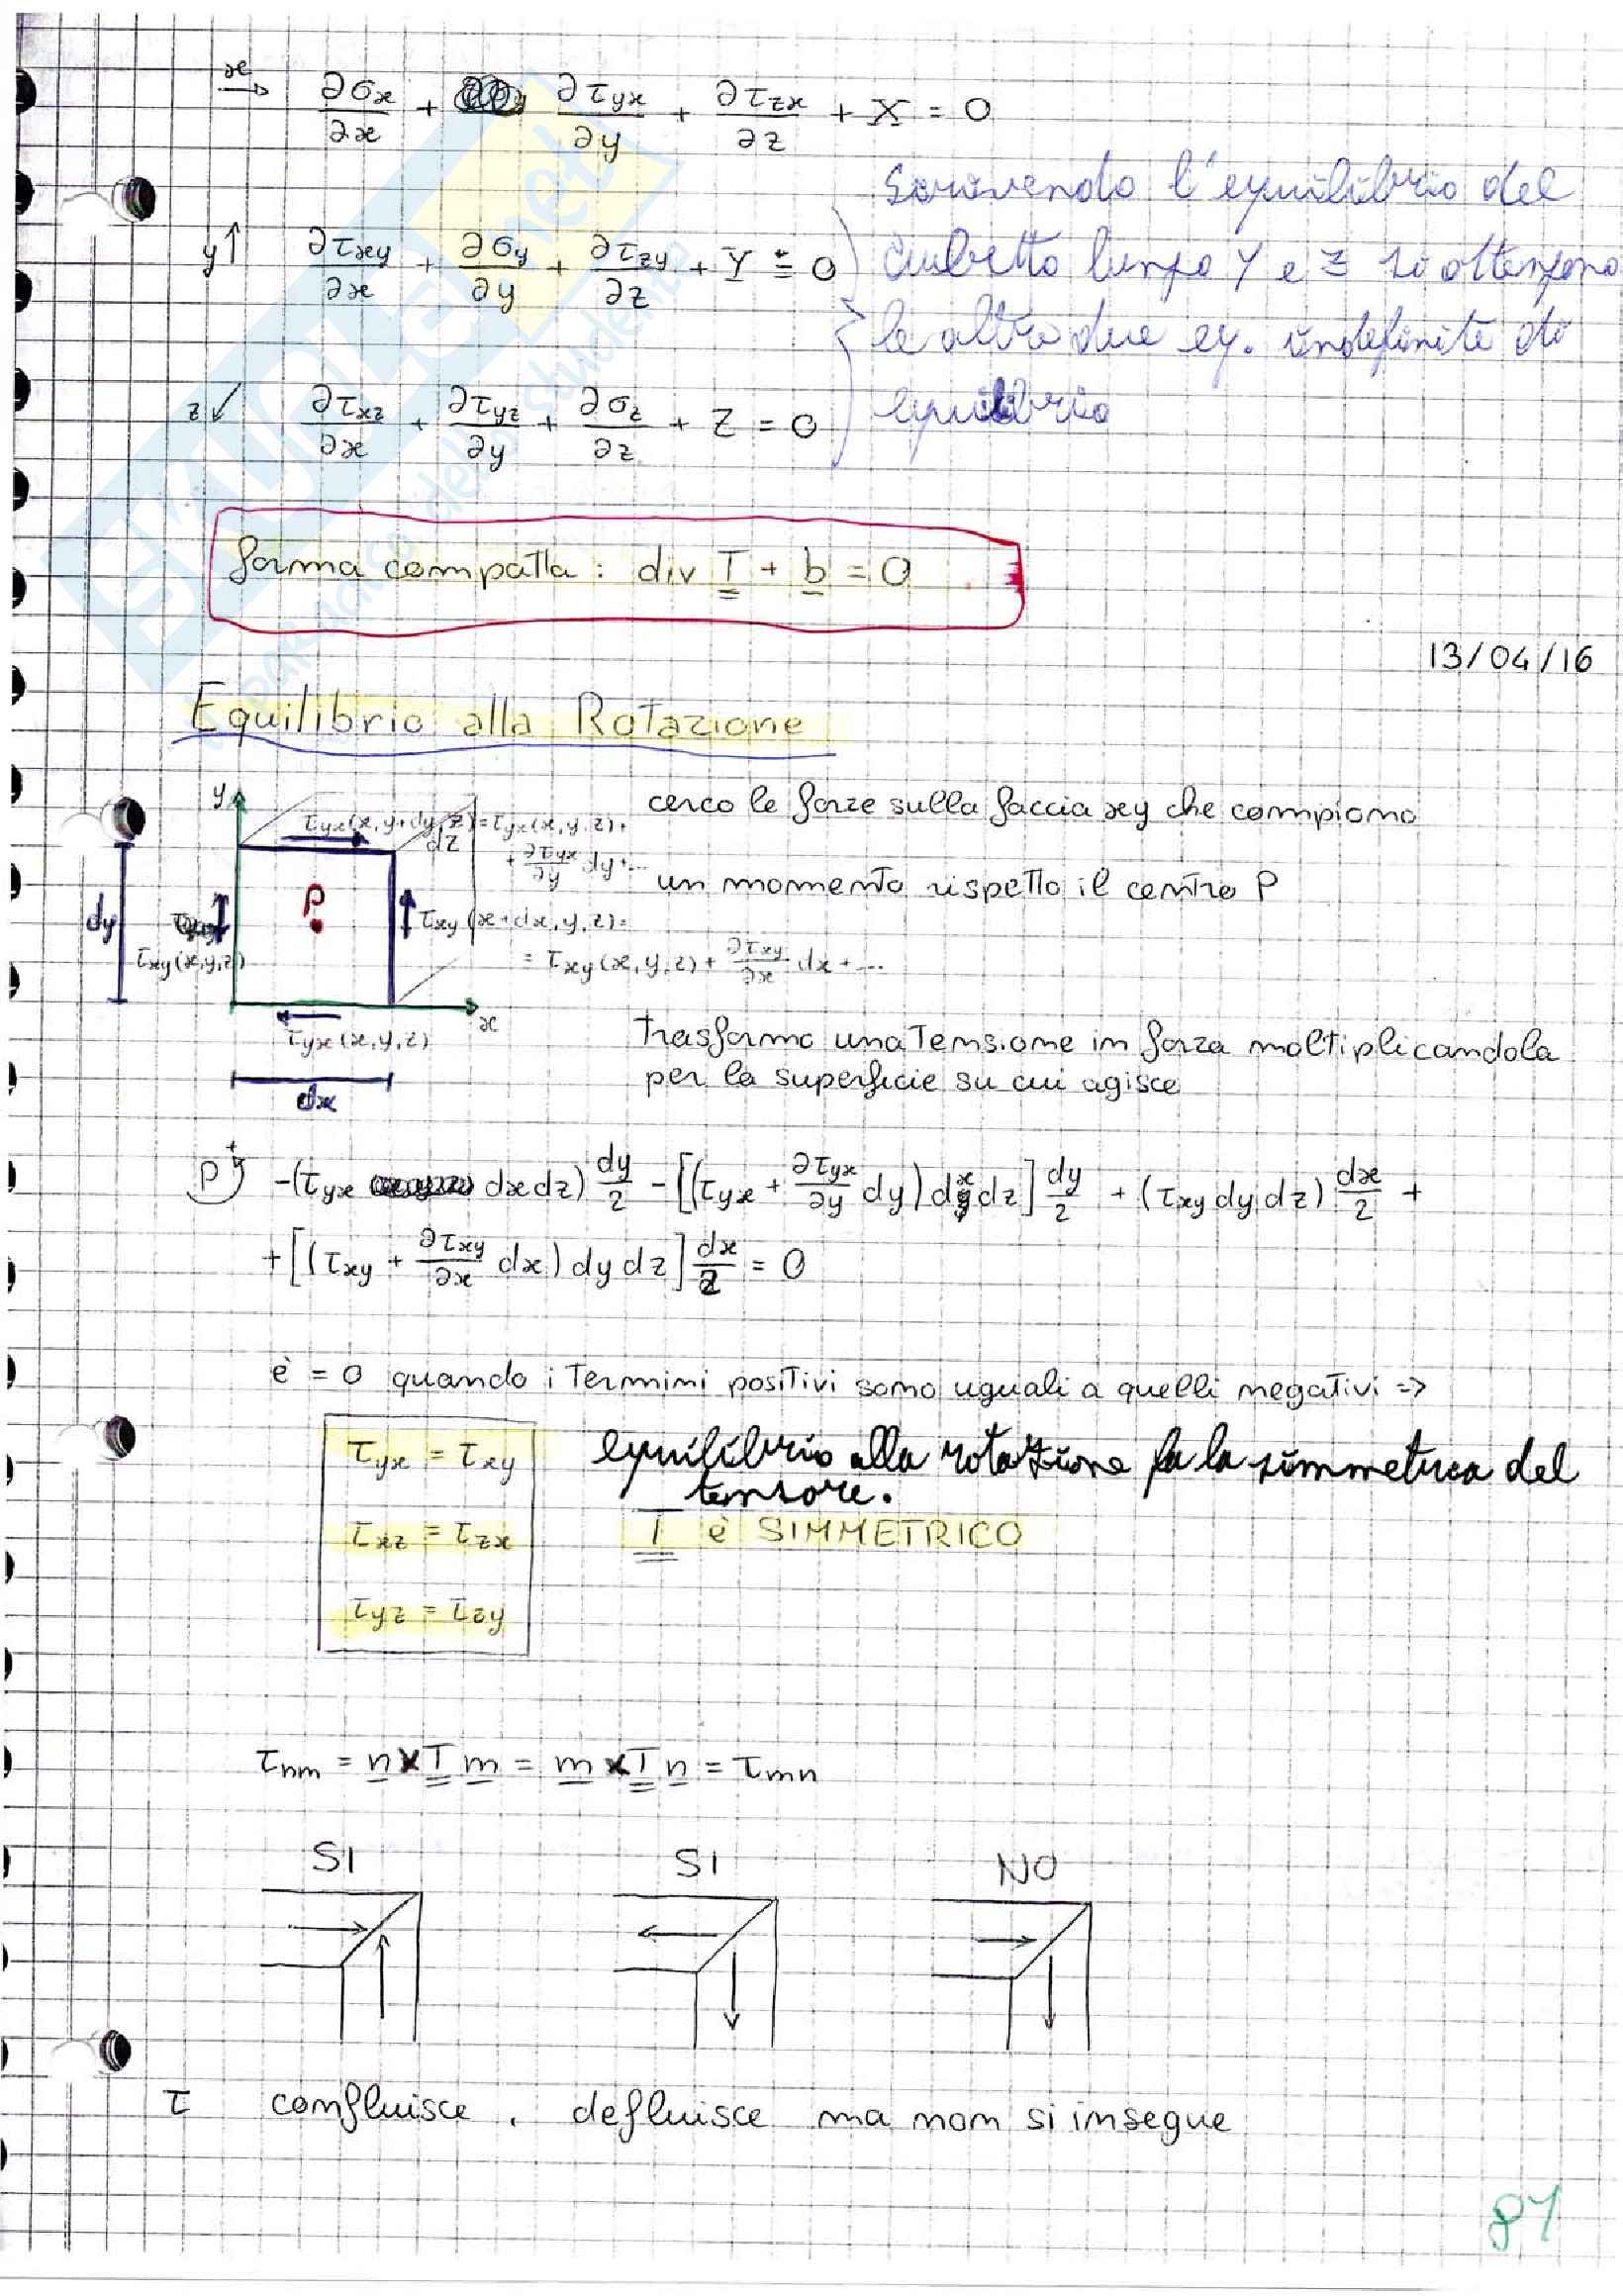 x→ ∂σx/∂x + ∂τyx/∂y + ∂τzx/∂z + X = 0
y↑ ∂τxy/∂x + ∂σy/∂y + ∂τzy/∂z + Y = 0
z↙ ∂τxz/∂x + ∂τyz/∂y + ∂σz/∂z + Z = 0
scrivendo l'equilibrio del
cubetto lungo Y e Z si ottengono
le altre due eq. indefinite di
equilibrio
forma compatta: div T + b = 0
13/04/16
Equilibrio alla Rotazione
y
τyx(x,y+dy,z) = τyx(x,y,z)+
dz
+ ∂τyx/∂y dy+...
cerco le forze sulla faccia xy che compiono
un momento rispetto il centro P
P
dy
τxy(x,y,z)
τxy(x+dx,y,z)=
= τxy(x,y,z) + ∂τxy/∂x dx + ...
x
τyx(x,y,z)
dx
trasformo una tensione in forza moltiplicandola
per la superficie su cui agisce
P + -(τyx dx dz) dy/2 - [(τyx + ∂τyx/∂y dy) dx dz] dy/2 + (τxy dy dz) dx/2 +
+ [(τxy + ∂τxy/∂x dx) dy dz] dx/2 = 0
è = 0 quando i termini positivi sono uguali a quelli negativi =>
τyx = τxy
equilibrio alla rotazione fa la simmetrica del
tensore.
τxz = τzx
T è SIMMETRICO
τyz = τzy
τnm = n × T m = m × T n = τmn
SI SI NO
τ confluisce, defluisce ma non si insegue
87